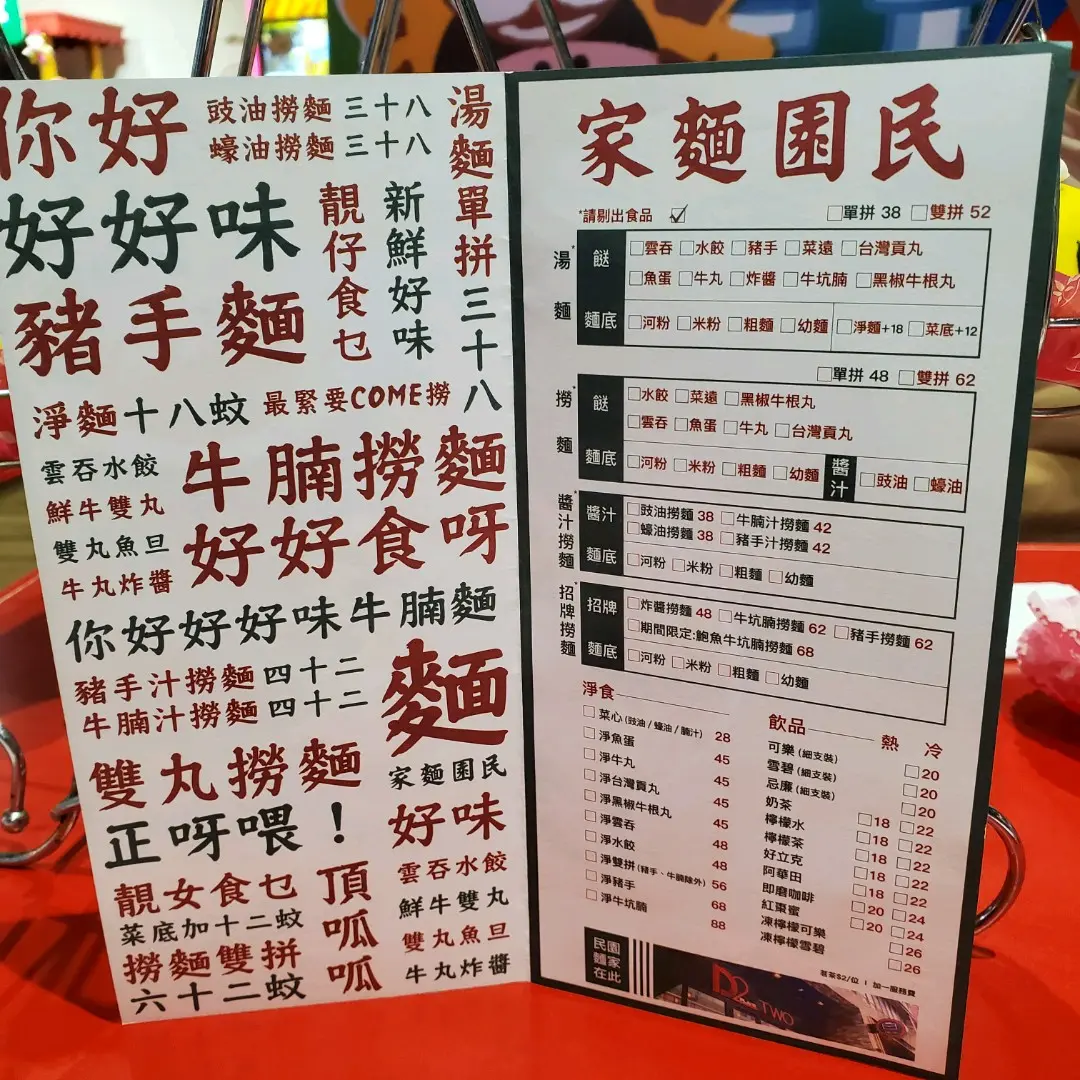 你好
豉油撈麵三十八
蠔油撈麵三十八
湯麵單拼三十八
好好味
靚仔食乜
新鮮好味
豬手麵
淨麵十八蚊
最緊要COME撈
雲吞水餃
鮮牛雙丸
雙丸魚旦
牛丸炸醬
牛腩撈麵
好好食呀
你好好好味牛腩麵
豬手汁撈麵四十二
牛腩汁撈麵四十二
麵
家麵園民
雙丸撈麵
正呀喂！
好味
靚女食乜
菜底加十二蚊
撈麵雙拼
六十二蚊
頂呱呱
雲吞水餃
鮮牛雙丸
雙丸魚旦
牛丸炸醬
家麵園民
*請剔出食品 ☑ □單拼 38 □雙拼 52
湯麵*
餸 □雲吞 □水餃 □豬手 □菜遠 □台灣貢丸
□魚蛋 □牛丸 □炸醬 □牛坑腩 □黑椒牛根丸
麵底 □河粉 □米粉 □粗麵 □幼麵 □淨麵+18 □菜底+12
□單拼 48 □雙拼 62
撈麵*
餸 □水餃 □菜遠 □黑椒牛根丸
□雲吞 □魚蛋 □牛丸 □台灣貢丸
麵底 □河粉 □米粉 □粗麵 □幼麵 醬汁 □豉油 □蠔油
醬汁撈麵*
醬汁 □豉油撈麵 38 □牛腩汁撈麵 42
□蠔油撈麵 38 □豬手汁撈麵 42
麵底 □河粉 □米粉 □粗麵 □幼麵
招牌撈麵*
招牌 □炸醬撈麵 48 □牛坑腩撈麵 62 □豬手撈麵 62
□期間限定:鮑魚牛坑腩撈麵 68
麵底 □河粉 □米粉 □粗麵 □幼麵
淨食
□ 菜心(豉油/蠔油/腩汁) 28
□ 淨魚蛋 45
□ 淨牛丸 45
□ 淨台灣貢丸 45
□ 淨黑椒牛根丸 45
□ 淨雲吞 48
□ 淨水餃 48
□ 淨雙拼(豬手、牛腩除外) 56
□ 淨豬手 68
□ 淨牛坑腩 88
飲品 熱 冷
可樂(細支裝) □20
雪碧(細支裝) □20
忌廉(細支裝) □20
奶茶 □18 □22
檸檬水 □18 □22
檸檬茶 □18 □22
好立克 □18 □22
阿華田 □18 □22
即磨咖啡 □20 □24
紅棗蜜 □20 □24
凍檸檬可樂 □26
凍檸檬雪碧 □26
民園麵家在此
TWO
茗茶$2/位 | 加一服務費